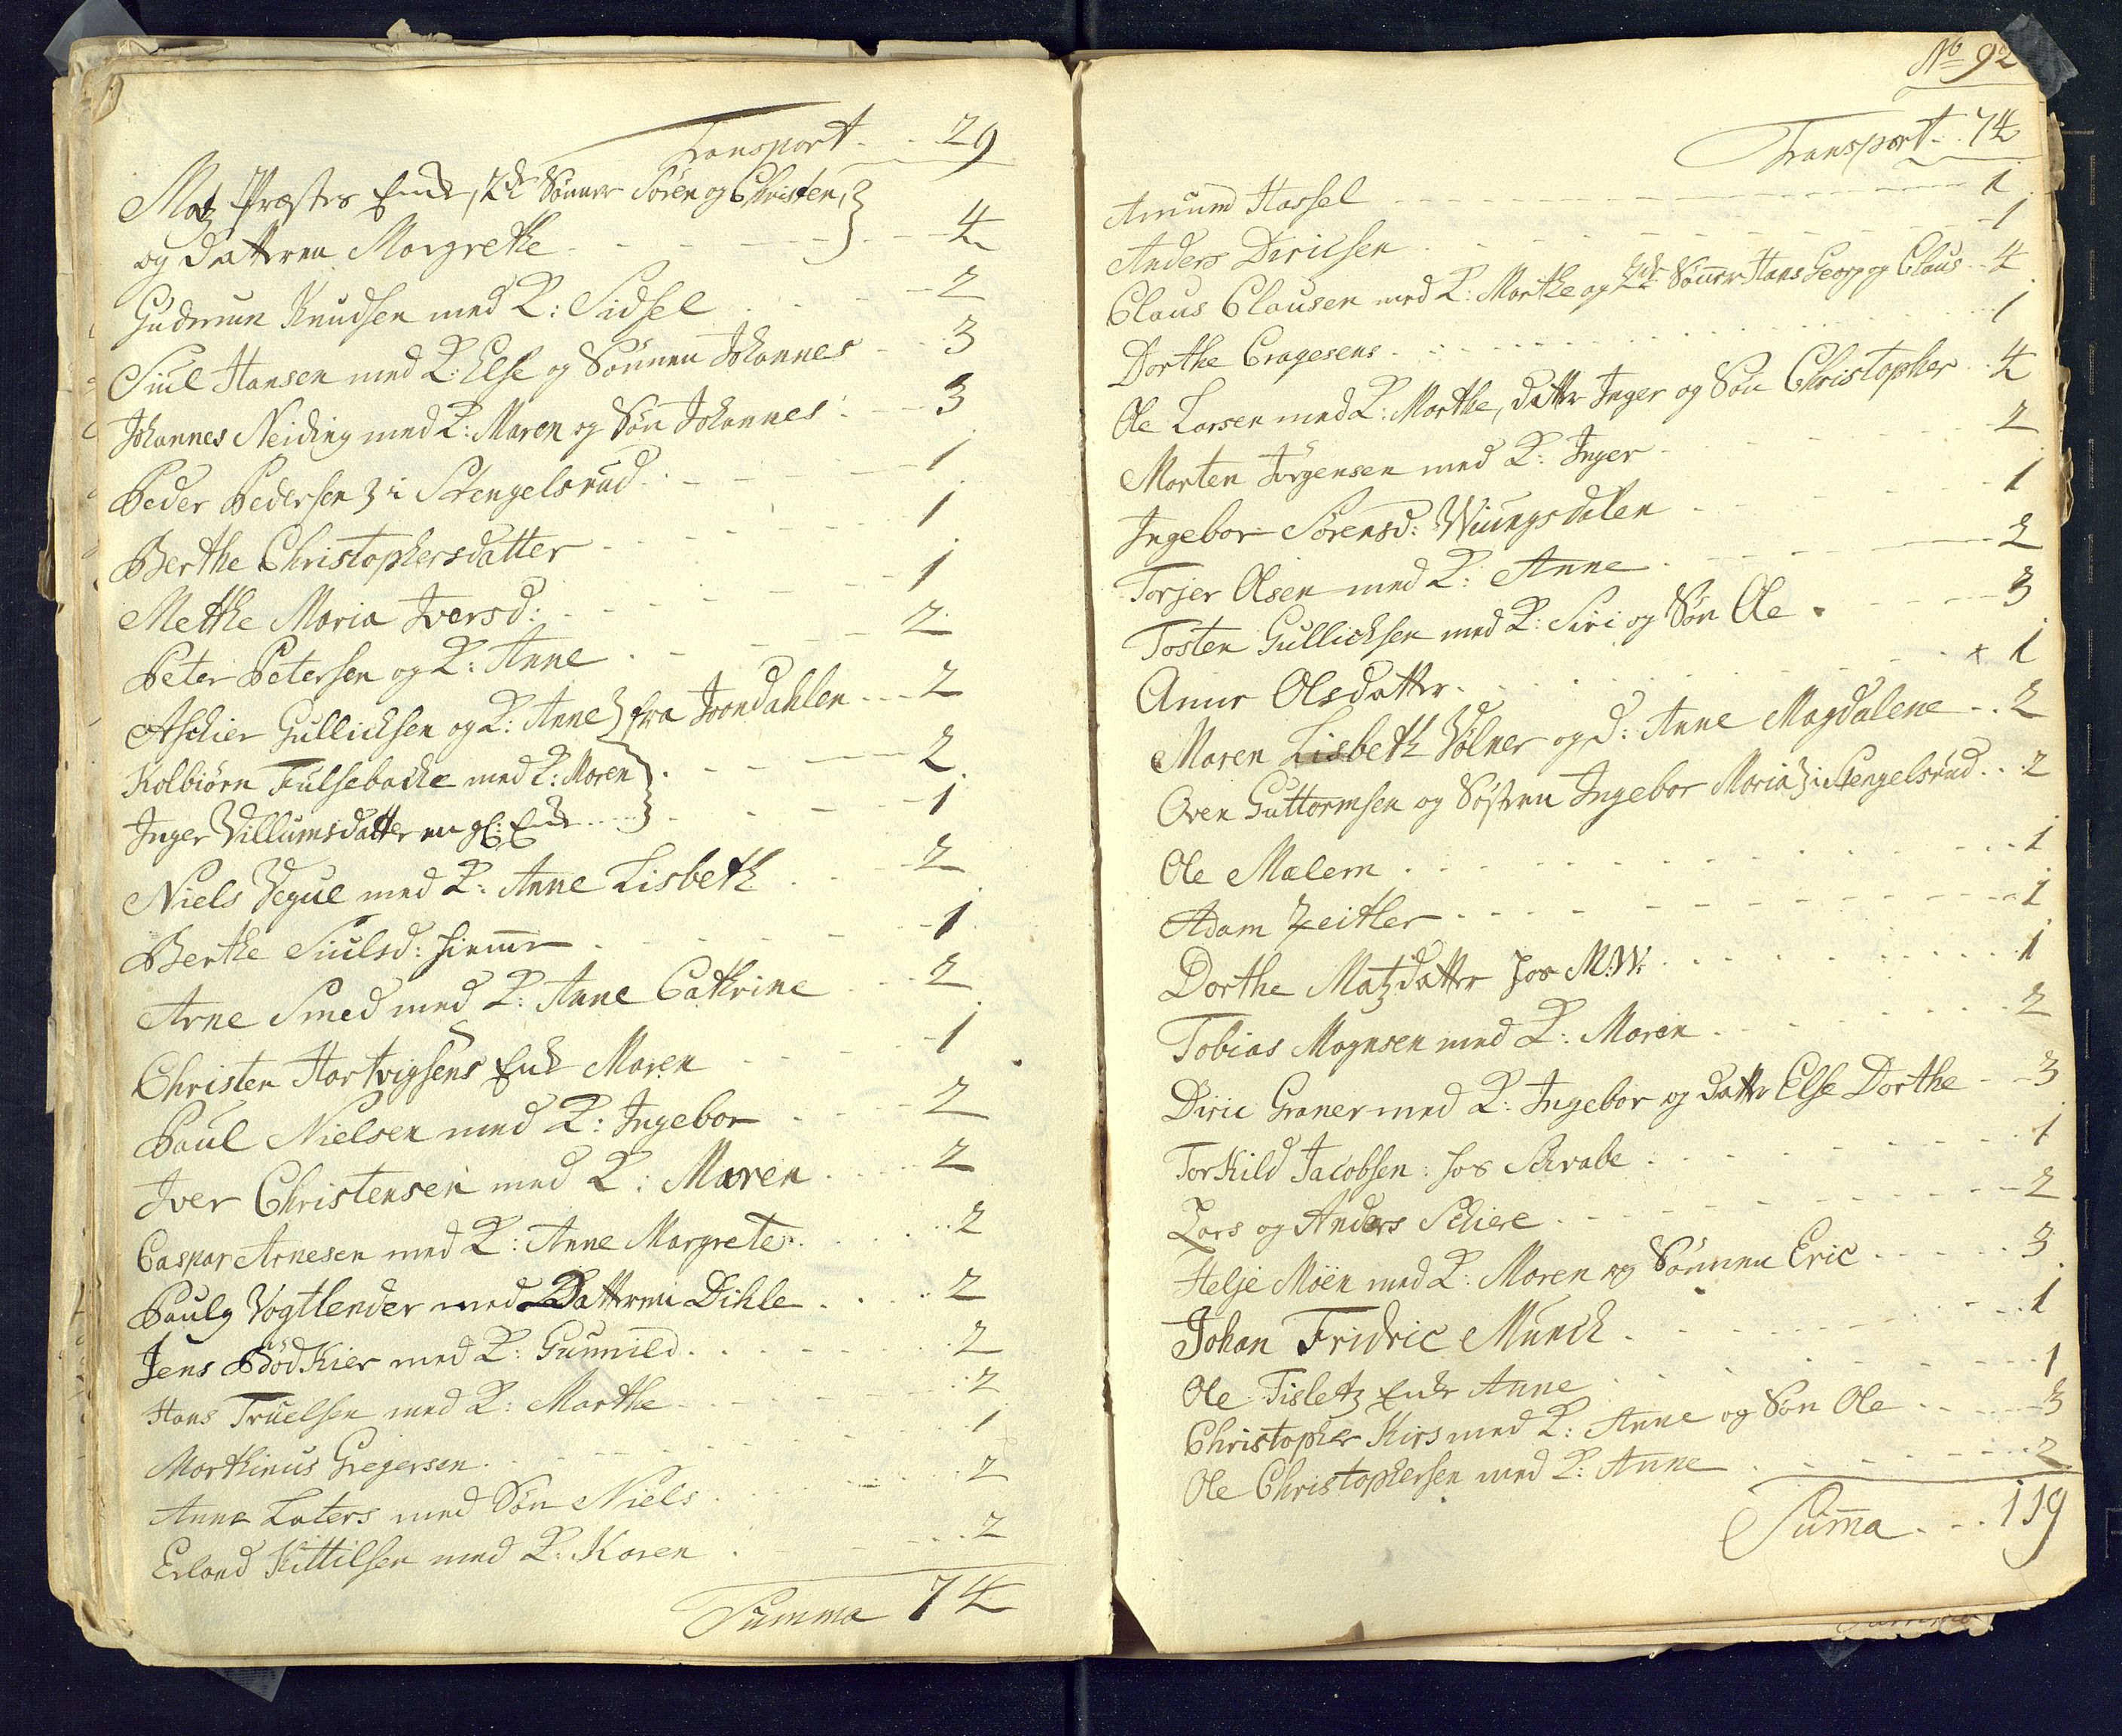 Transport - - 29
Matz Præstes Enke, 2de Sønner Søren og Christen,
og Dattren Margrethe - - - - 4
Gudmun Knudsen med K: Sidsel - - 2
Siul Hansen med K: Else og Sønnen Johannes - - 3
Johannes Neiding med K: Maren og Søn Johannes - - 3
Peder Pedersen i Stengelsrud - - - 1
Berthe Christophersdatter - - - 1
Methe Maria Iversd: - - - 1
Peter Petersen og K: Anne - - - 2
Aschier Gullichsen og K: Anne fra Jondahlen - - 2
Kolbiørn Fulsebacke med K: Maren - - - 2
Inger Villumsdatter en gl: Enke - - - 1
Niels Vegue med K: Anne Lisbeth - - 2
Berthe Siulsd: - - - 1
Arne Smed med K: Anne Cathrine - - 2
Christen Hartvigsens Enke Maren - - - 1
Paul Nielsen med K: Ingebor - - 2
Iver Christensen med K: Maren - - 2
Caspar Arnesen med K: Anne Margrete - - 2
Paulg Vogtlender med Dattren Dihle - - 2
Jens Bødkier med K: Gunnild - - - 2
Hans Truelsen med K: Marthe - - - 2
Marthinus Gregersen - - - 1
Anne Laters med Søn Niels - - - 2
Erland Kittilsen med K: Karen - - - 2
Summa 74
No 92
Transport - . 74
Amund Hassel - - - 1
Anders Dirichsen - - - 1
Claus Clausen med K: Marthe og 2de Sønner Hans Georg og Claus - - 4
Dorthe Cragesens - - - 1
Ole Larsen med K: Marthe, Datter Inger og Søn Christopher - - 4
Morten Jørgensen med K: Inger - - - 2
Ingebor Sørensd: Wiungsdalen - - - 1
Torjer Olsen med K: Anne - - - 2
Tosten Gullichsen med K: Siri og Søn Ole - - - 3
Anne Olsdatter - - - + 1
Maren Lisbeth Vølner og D: Anne Magdalene - - 2
Oven Guttormsen og Søstren Ingebor Maria i Stengelsrud - - 2
Ole Mælem - - - 1
Adam Zeitler - - - 1
Dorthe Matzdatter hos M:W: - - - 1
Tobias Magnsen med K: Maren - - - 2
Diric Graner med K: Ingebor og Datter Else Dorthe - - 3
Torkild Jacobsen: hos Schrabe - - - 1
Lars og Anders Schiere - - - 2
Helje Möen med K: Maren og Sønnen Eric - - - 3
Johan Fridric Munch - - - 1
Ole Tisletz Enke Anne - - - 1
Christopher Kirs med K: Anne og Søn Ole - - - 3
Ole Christophersen med K: Anne - - - 2
Summa - - - 119